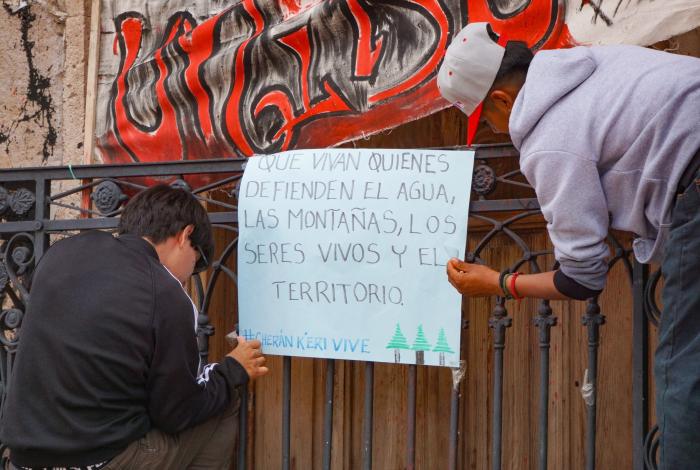 QUE VIVAN QUIENES
DEFIENDEN EL AGUA,
LAS MONTAÑAS, LOS
SERES VIVOS Y EL
TERRITORIO.
#CHERÁN K'ERI VIVE